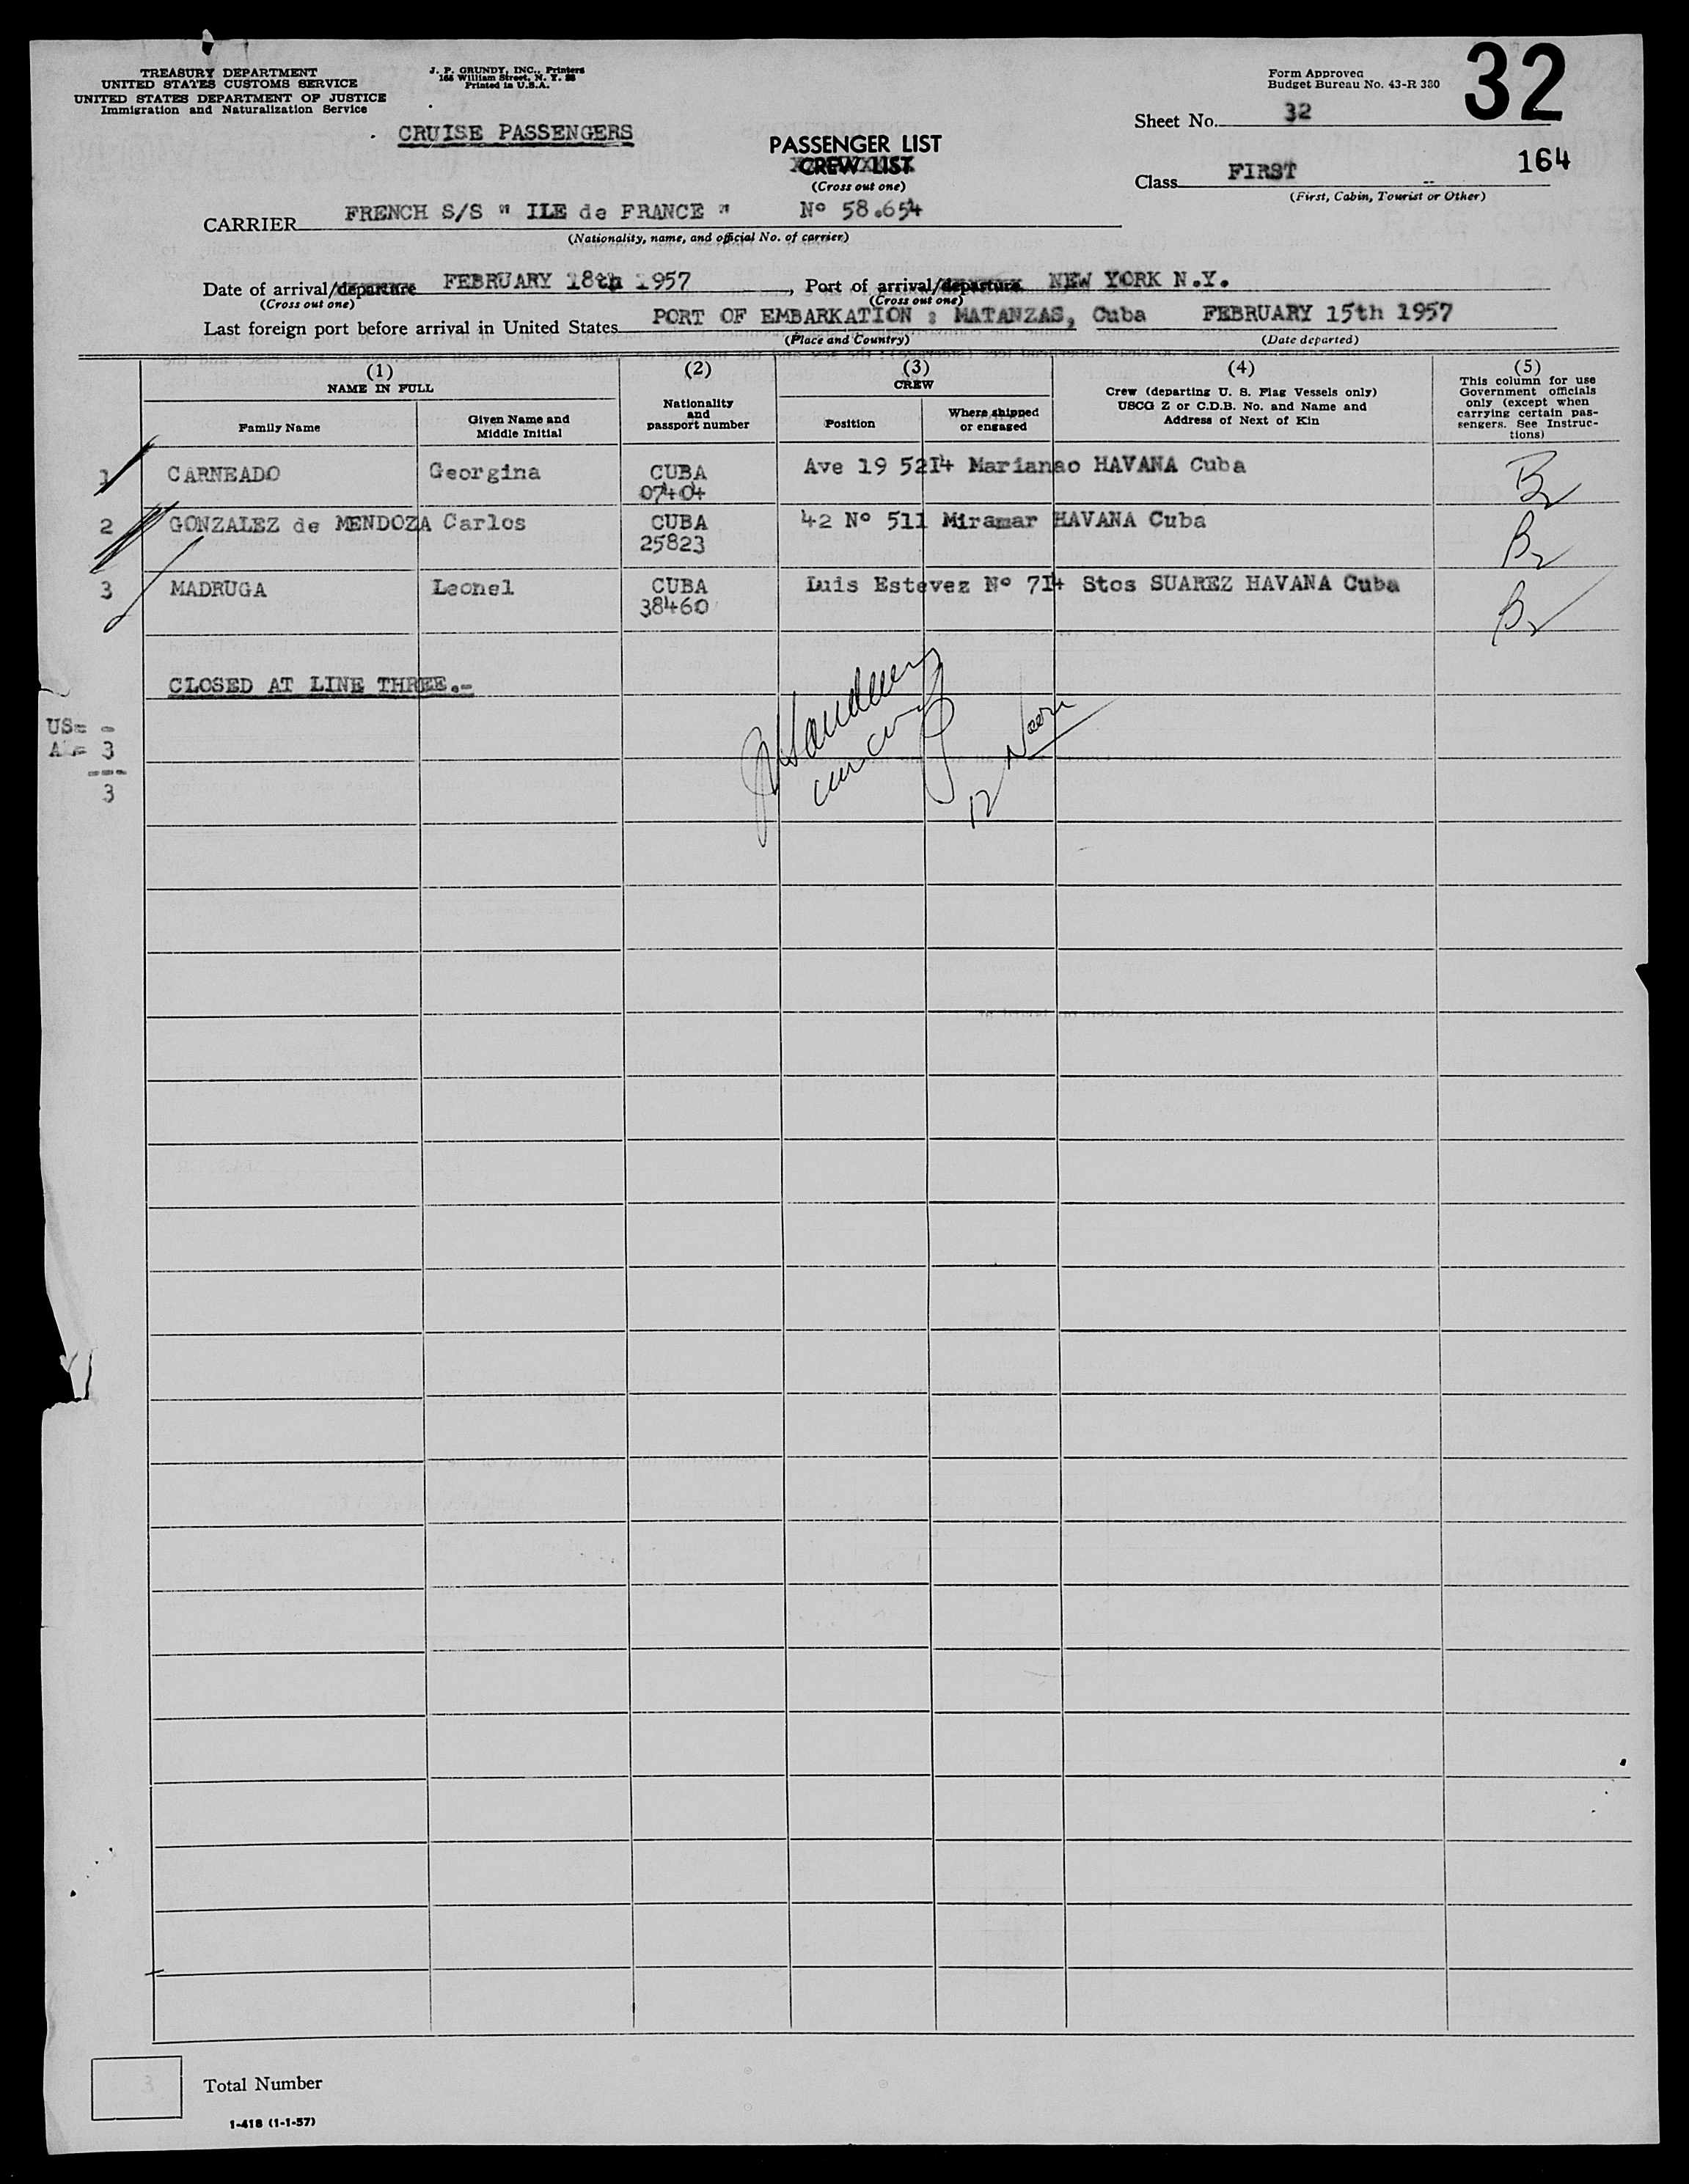 TREASURY DEPARTMENT
UNITED STATES CUSTOMS SERVICE
UNITED STATES DEPARTMENT OF JUSTICE
Immigration and Naturalization Service
J. P. GRUNDY, INC., Printers
Printed in U.S.A.
Form Approved
Budget Bureau No. 43-R 380
32
Sheet No. 32
CRUISE PASSENGERS
PASSENGER LIST
CREW LIST
(Cross out one)
164
Class FIRST
(First, Cabin, Tourist or Other)
CARRIER FRENCH S/S " ILE de FRANCE " Nº 58.654
(Nationality, name, and official No. of carrier)
Date of arrival/departure FEBRUARY 18th 1957, Port of arrival/departure NEW YORK N.Y.
(Cross out one) (Cross out one)
Last foreign port before arrival in United States PORT OF EMBARKATION : MATANZAS, Cuba FEBRUARY 15th 1957
(Place and Country) (Date departed)
(1) (2) (3) (4) (5)
NAME IN FULL
Family Name
Given Name and
Middle Initial
Nationality
and
passport number
CREW
Position
Where shipped
or engaged
Crew (departing U. S. Flag Vessels only)
USCG Z or C.D.B. No. and Name and
Address of Next of Kin
This column for use
Government officials
only (except when
carrying certain pas-
sengers. See Instruc-
tions)
1 CARNEADO Georgina CUBA Ave 19 5214 Marianao HAVANA Cuba
07404
2 GONZALEZ de MENDOZA Carlos CUBA 42 Nº 511 Miramar HAVANA Cuba
25823
3 MADRUGA Leonel CUBA Luis Estevez Nº 714 Stos SUAREZ HAVANA Cuba
38460
CLOSED AT LINE THREE.-
US= -
= 3
3
12 Noon
3 Total Number
1-418 (1-1-57)